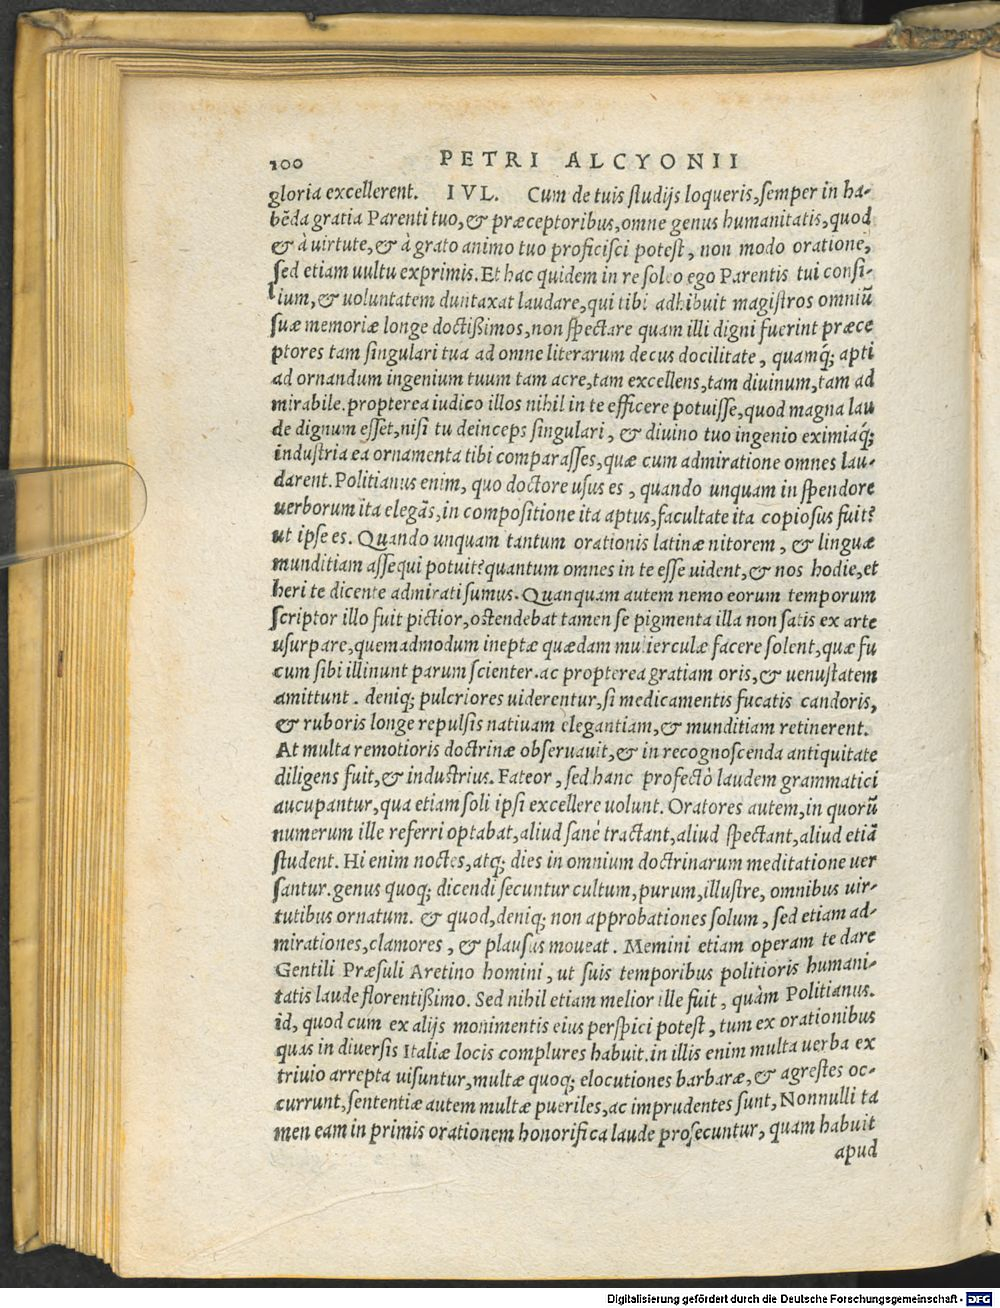 100 PETRI ALCYONII
gloria excellerent. IVL. Cum de tuis studijs loqueris, semper in ha-
bẽda gratia Parenti tuo, & præceptoribus, omne genus humanitatis, quod
& à uirtute, & à grato animo tuo proficisci potest, non modo oratione,
sed etiam uultu exprimis. Et hac quidem in re soleo ego Parentis tui consi-
lium, & uoluntatem duntaxat laudare, qui tibi adhibuit magistros omniũ
suæ memoriæ longe doctißimos, non spectare quam illi digni fuerint præce
ptores tam singulari tua ad omne literarum decus docilitate, quamq́; apti
ad ornandum ingenium tuum tam acre, tam excellens, tam diuinum, tam ad
mirabile. propterea iudico illos nihil in te efficere potuisse, quod magna lau
de dignum esset, nisi tu deinceps singulari, & diuino tuo ingenio eximiaq́;
industria ea ornamenta tibi comparasses, quæ cum admiratione omnes lau-
darent. Politianus enim, quo doctore usus es, quando unquam in spendore
uerborum ita elegãs, in compositione ita aptus, facultate ita copiosus fuit?
ut ipse es. Quando unquam tantum orationis latinæ nitorem, & linguæ
munditiam assequi potuit? quantum omnes in te esse uident, & nos hodie, et
heri te dicente admirati sumus. Quanquam autem nemo eorum temporum
scriptor illo fuit pictior, ostendebat tamen se pigmenta illa non satis ex arte
usurpare, quemadmodum ineptæ quædam mulierculæ facere solent, quæ fu
cum sibi illinunt parum scienter. ac propterea gratiam oris, & uenustatem
amittunt. deniq; pulcriores uiderentur, si medicamentis fucatis candoris,
& ruboris longe repulsis natiuam elegantiam, & munditiam retinerent.
At multa remotioris doctrinæ obseruauit, & in recognoscenda antiquitate
diligens fuit, & industrius. Fateor, sed hanc profectò laudem grammatici
aucupantur, qua etiam soli ipsi excellere uolunt. Oratores autem, in quorũ
numerum ille referri optabat, aliud sanè tractant, aliud spectant, aliud etiã
student. Hi enim noctes, atq; dies in omnium doctrinarum meditatione uer
santur. genus quoq; dicendi secuntur cultum, purum, illustre, omnibus uir-
tutibus ornatum. & quod, deniq; non approbationes solum, sed etiam ad-
mirationes, clamores, & plausus moueat. Memini etiam operam te dare
Gentili Præsuli Aretino homini, ut suis temporibus politioris humani-
tatis laude florentißimo. Sed nihil etiam melior ille fuit, quàm Politianus.
id, quod cum ex alijs monimentis eius perspici potest, tum ex orationibus
quas in diuersis Italiæ locis complures habuit. in illis enim multa uerba ex
triuio arrepta uisuntur, multæ quoq; elocutiones barbaræ, & agrestes oc-
currunt, sententiæ autem multæ pueriles, ac imprudentes sunt, Nonnulli ta
men eam in primis orationem honorifica laude prosecuntur, quam habuit
apud
Digitalisierung gefördert durch die Deutsche Forschungsgemeinschaft - DFG